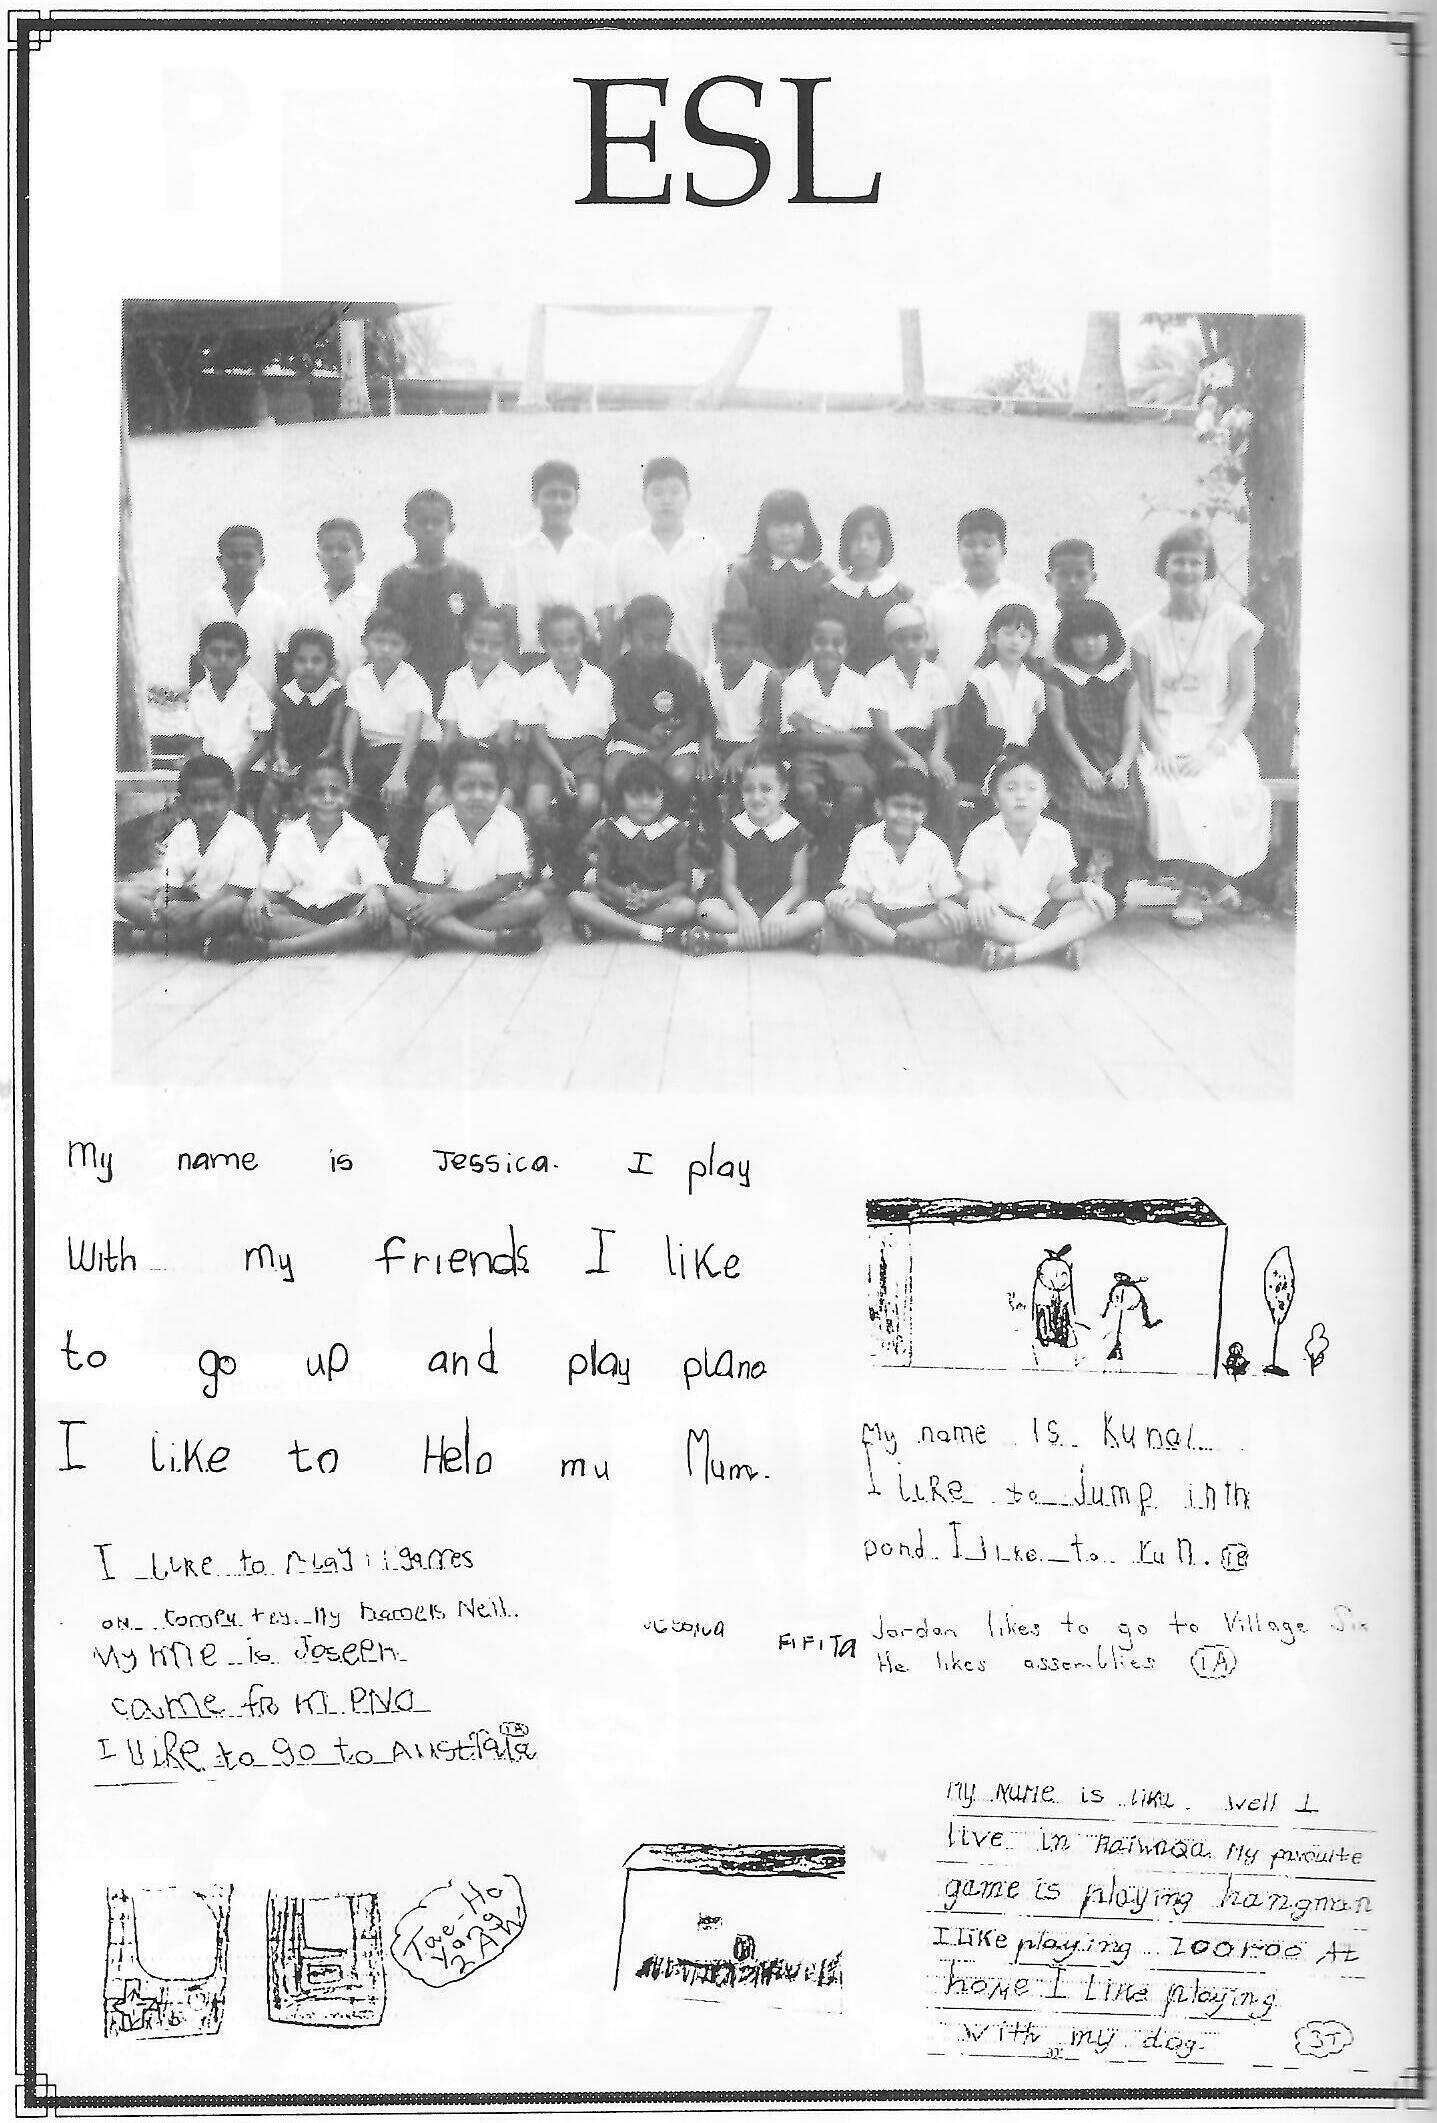 ESL
My name is Jessica. I play
With my friends I like
to go up and play piano
I like to Help my Mum.
My name is Kunal
I like to jump in th
pond I like to run. 1B
I like to play games
on My name is Neil.
My me is Joseph
came from PNG
I like to go to Australia 1A
FIFITA
Jordan likes to go to Village Six
He likes assemblies 1A
Tae-Ho
Yang
2AH
My name is well I
live in Raiwaqa My favourite
game is playing hangman
I like playing At
home I Like playing
with my dog. 3T